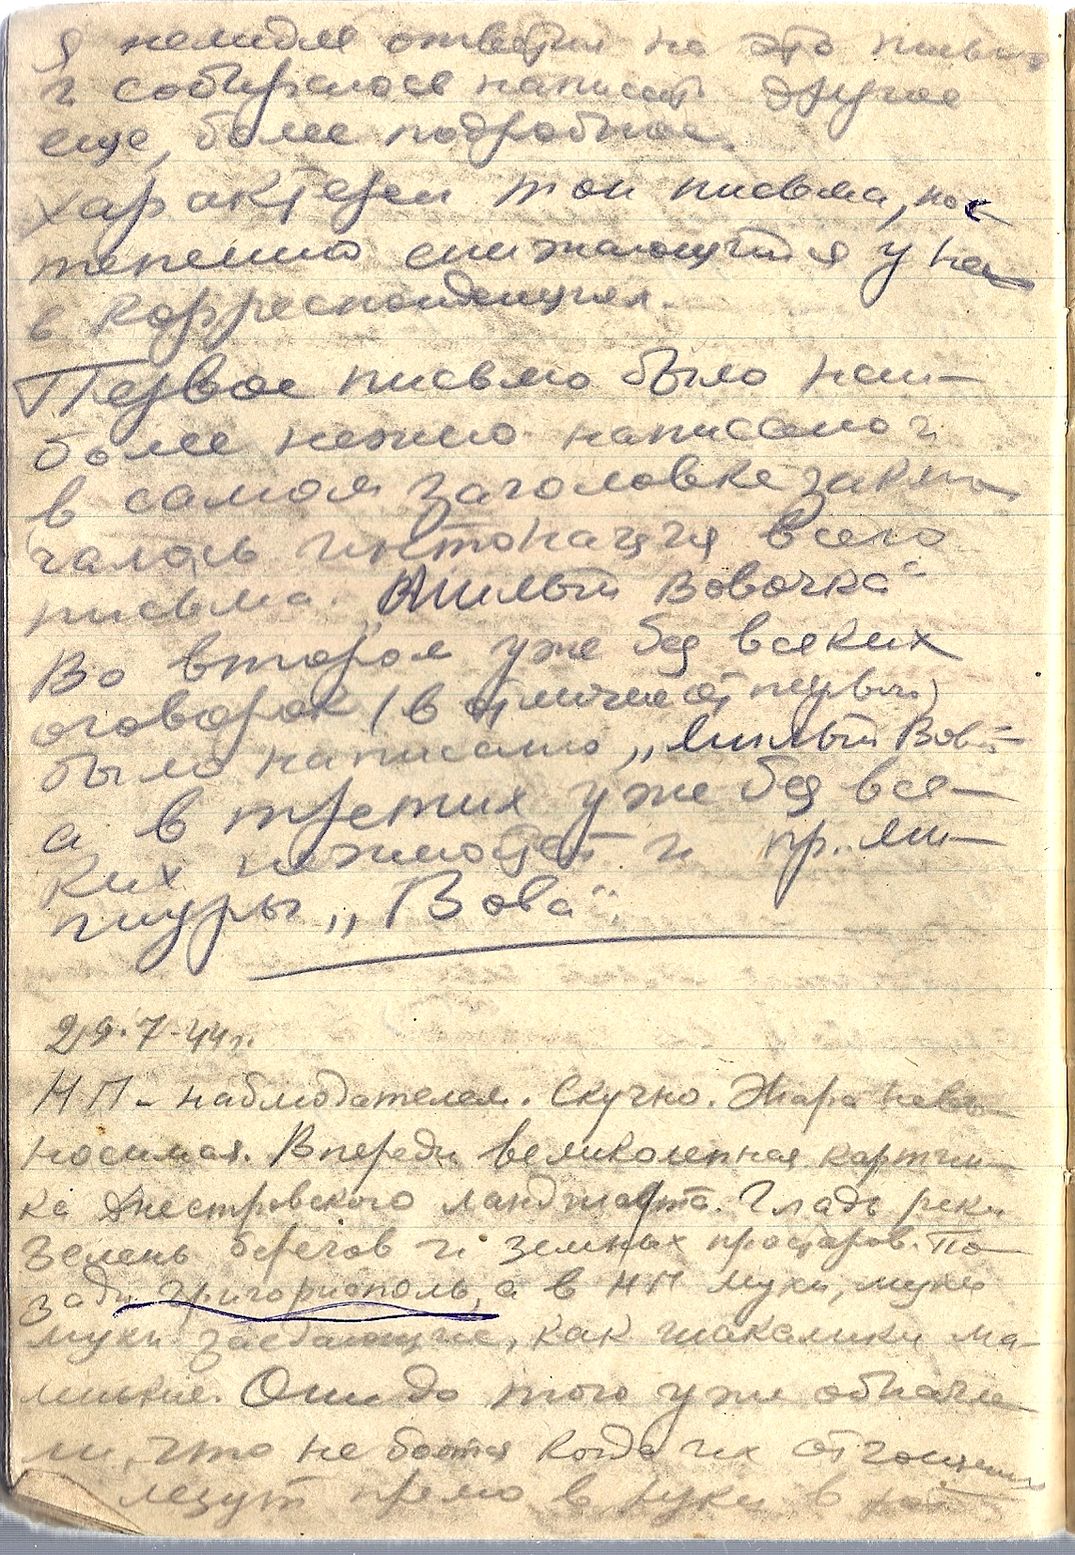 Я немидле ответил на это письмо
и собиралось написать другое
еще, более подробное.
Характерен тон письма, пос-
тепенно снижающийся у нея
в корреспонденциях.
Первое письмо было наи-
более нежно написано и
в самом заголовке заклю-
чалась интонация всего
письма. „Милый Вовочка“
Во втором уже без всяких
оговорок (в отличие от первых)
было написано „Милый Вова“
а в третих уже без вся-
ких нежностей и пр.
„Вова“.
29.7.44г.
НП – наблюдателем. Скучно. Жара невы-
носимая. Впереди великолепная картин-
ка Днестровского ландшафта. Гладь реки
Зелень берегов и земных просторов. По-
зади Григориополь, а в НП мухи, мухи
мухи заедающие, как шакалики ма-
линькие. Они до того уже обнагле-
ли, что не боятся когда их отгоняешь
лезут прямо в руки в рот